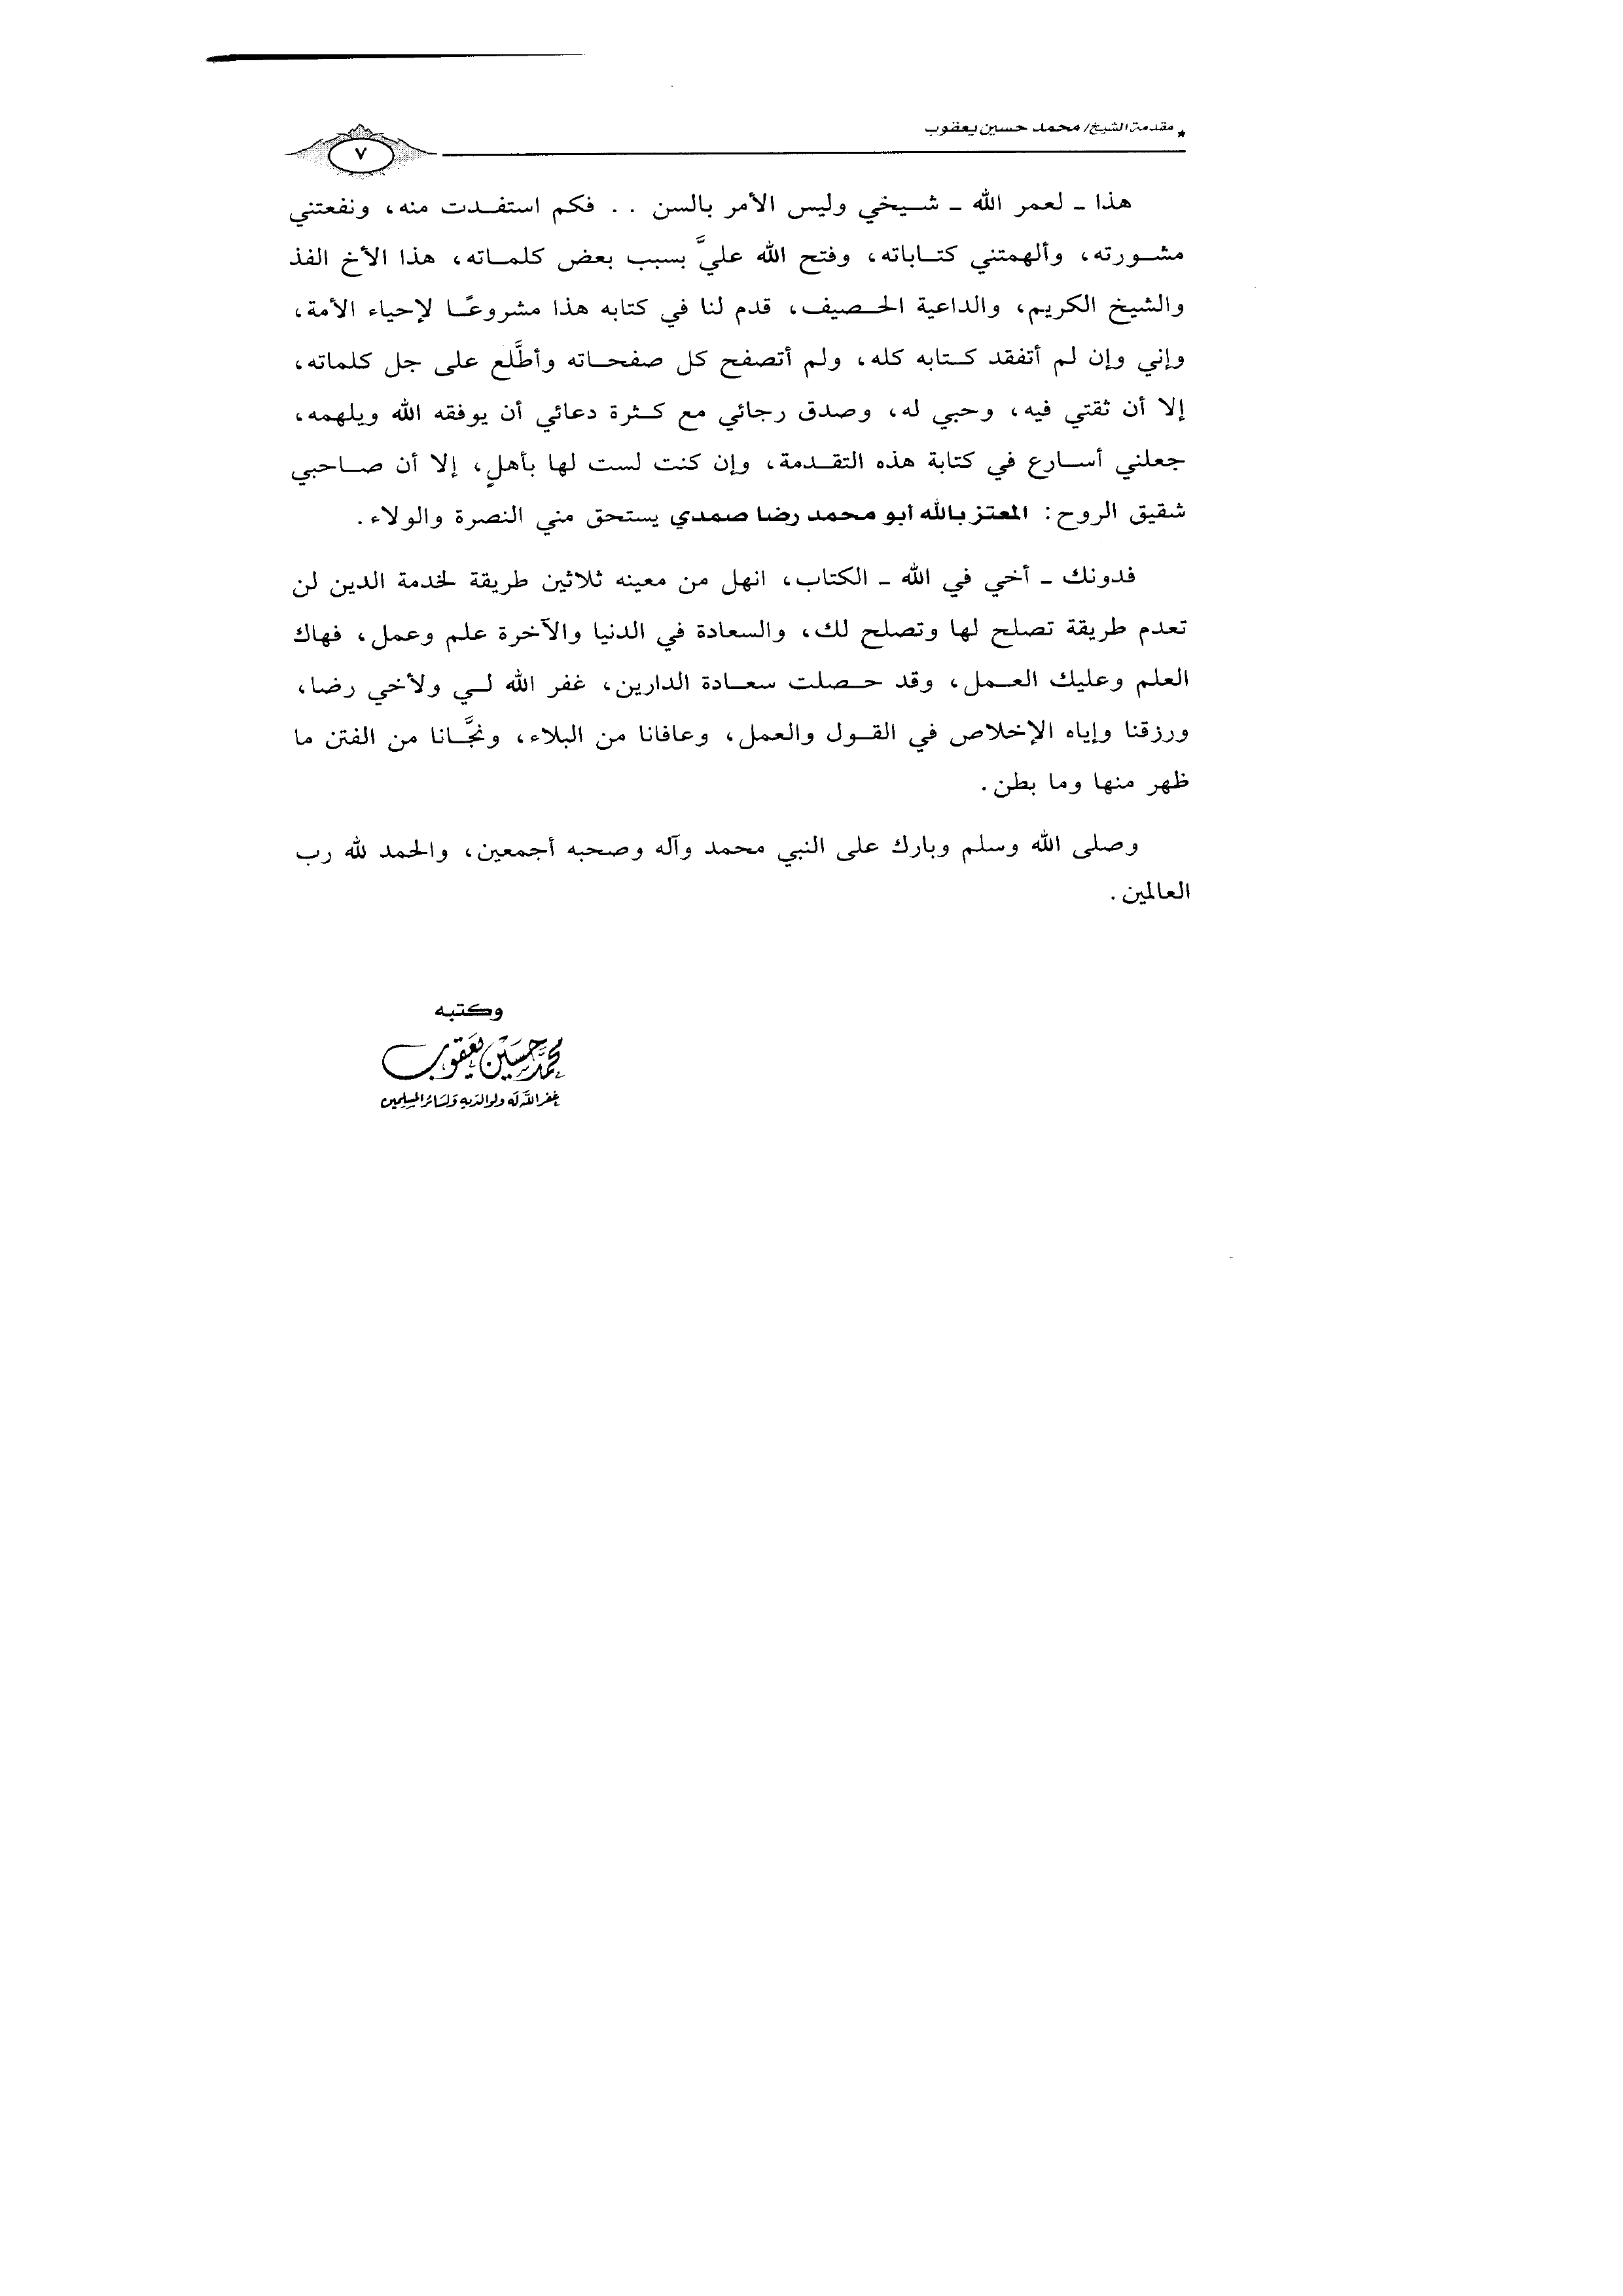 * مقدمة الشيخ/ محمد حسين يعقوب
٧
هذا ـ لعمر الله ـ شـيخي وليس الأمر بالسن . . فكم استفـدت منه، ونفعتني
مشـورته، وألهمتني كتـاباته، وفتح الله عليَّ بسبب بعض كلمـاته، هذا الأخ الفذ
والشيخ الكريم، والداعية الحـصيف، قدم لنا في كتابه هذا مشروعًـا لإحياء الأمة،
وإني وإن لم أتفقد كـتابه كله، ولم أتصفح كل صفحـاته وأطَّلع على جل كلماته،
إلا أن ثقتي فيه، وحبي له، وصدق رجائي مع كـثرة دعائي أن يوفقه الله ويلهمه،
جعلني أسـارع في كتابة هذه التقـدمة، وإن كنت لست لها بأهلٍ، إلا أن صـاحبي
شقيق الروح: المعتز بالله أبو محمد رضا صمدي يستحق مني النصرة والولاء.
فدونك ـ أخي في الله ـ الكتاب، انهل من معينه ثلاثين طريقة لخدمة الدين لن
تعدم طريقة تصلح لها وتصلح لك، والسعادة في الدنيا والآخرة علم وعمل، فهاك
العلم وعليك العـمل، وقد حـصلت سعـادة الدارين، غفر الله لـي ولأخي رضا،
ورزقنا وإياه الإخلاص في القـول والعمل، وعافانا من البلاء، ونجَّـانا من الفتن ما
ظهر منها وما بطن.
وصلى الله وسلم وبارك على النبي محمد وآله وصحبه أجمعين، والحمد لله رب
العالمين.
وكتبه
محمد حسين يعقوب
غفر الله له ولوالديه ولسائر المسلمين